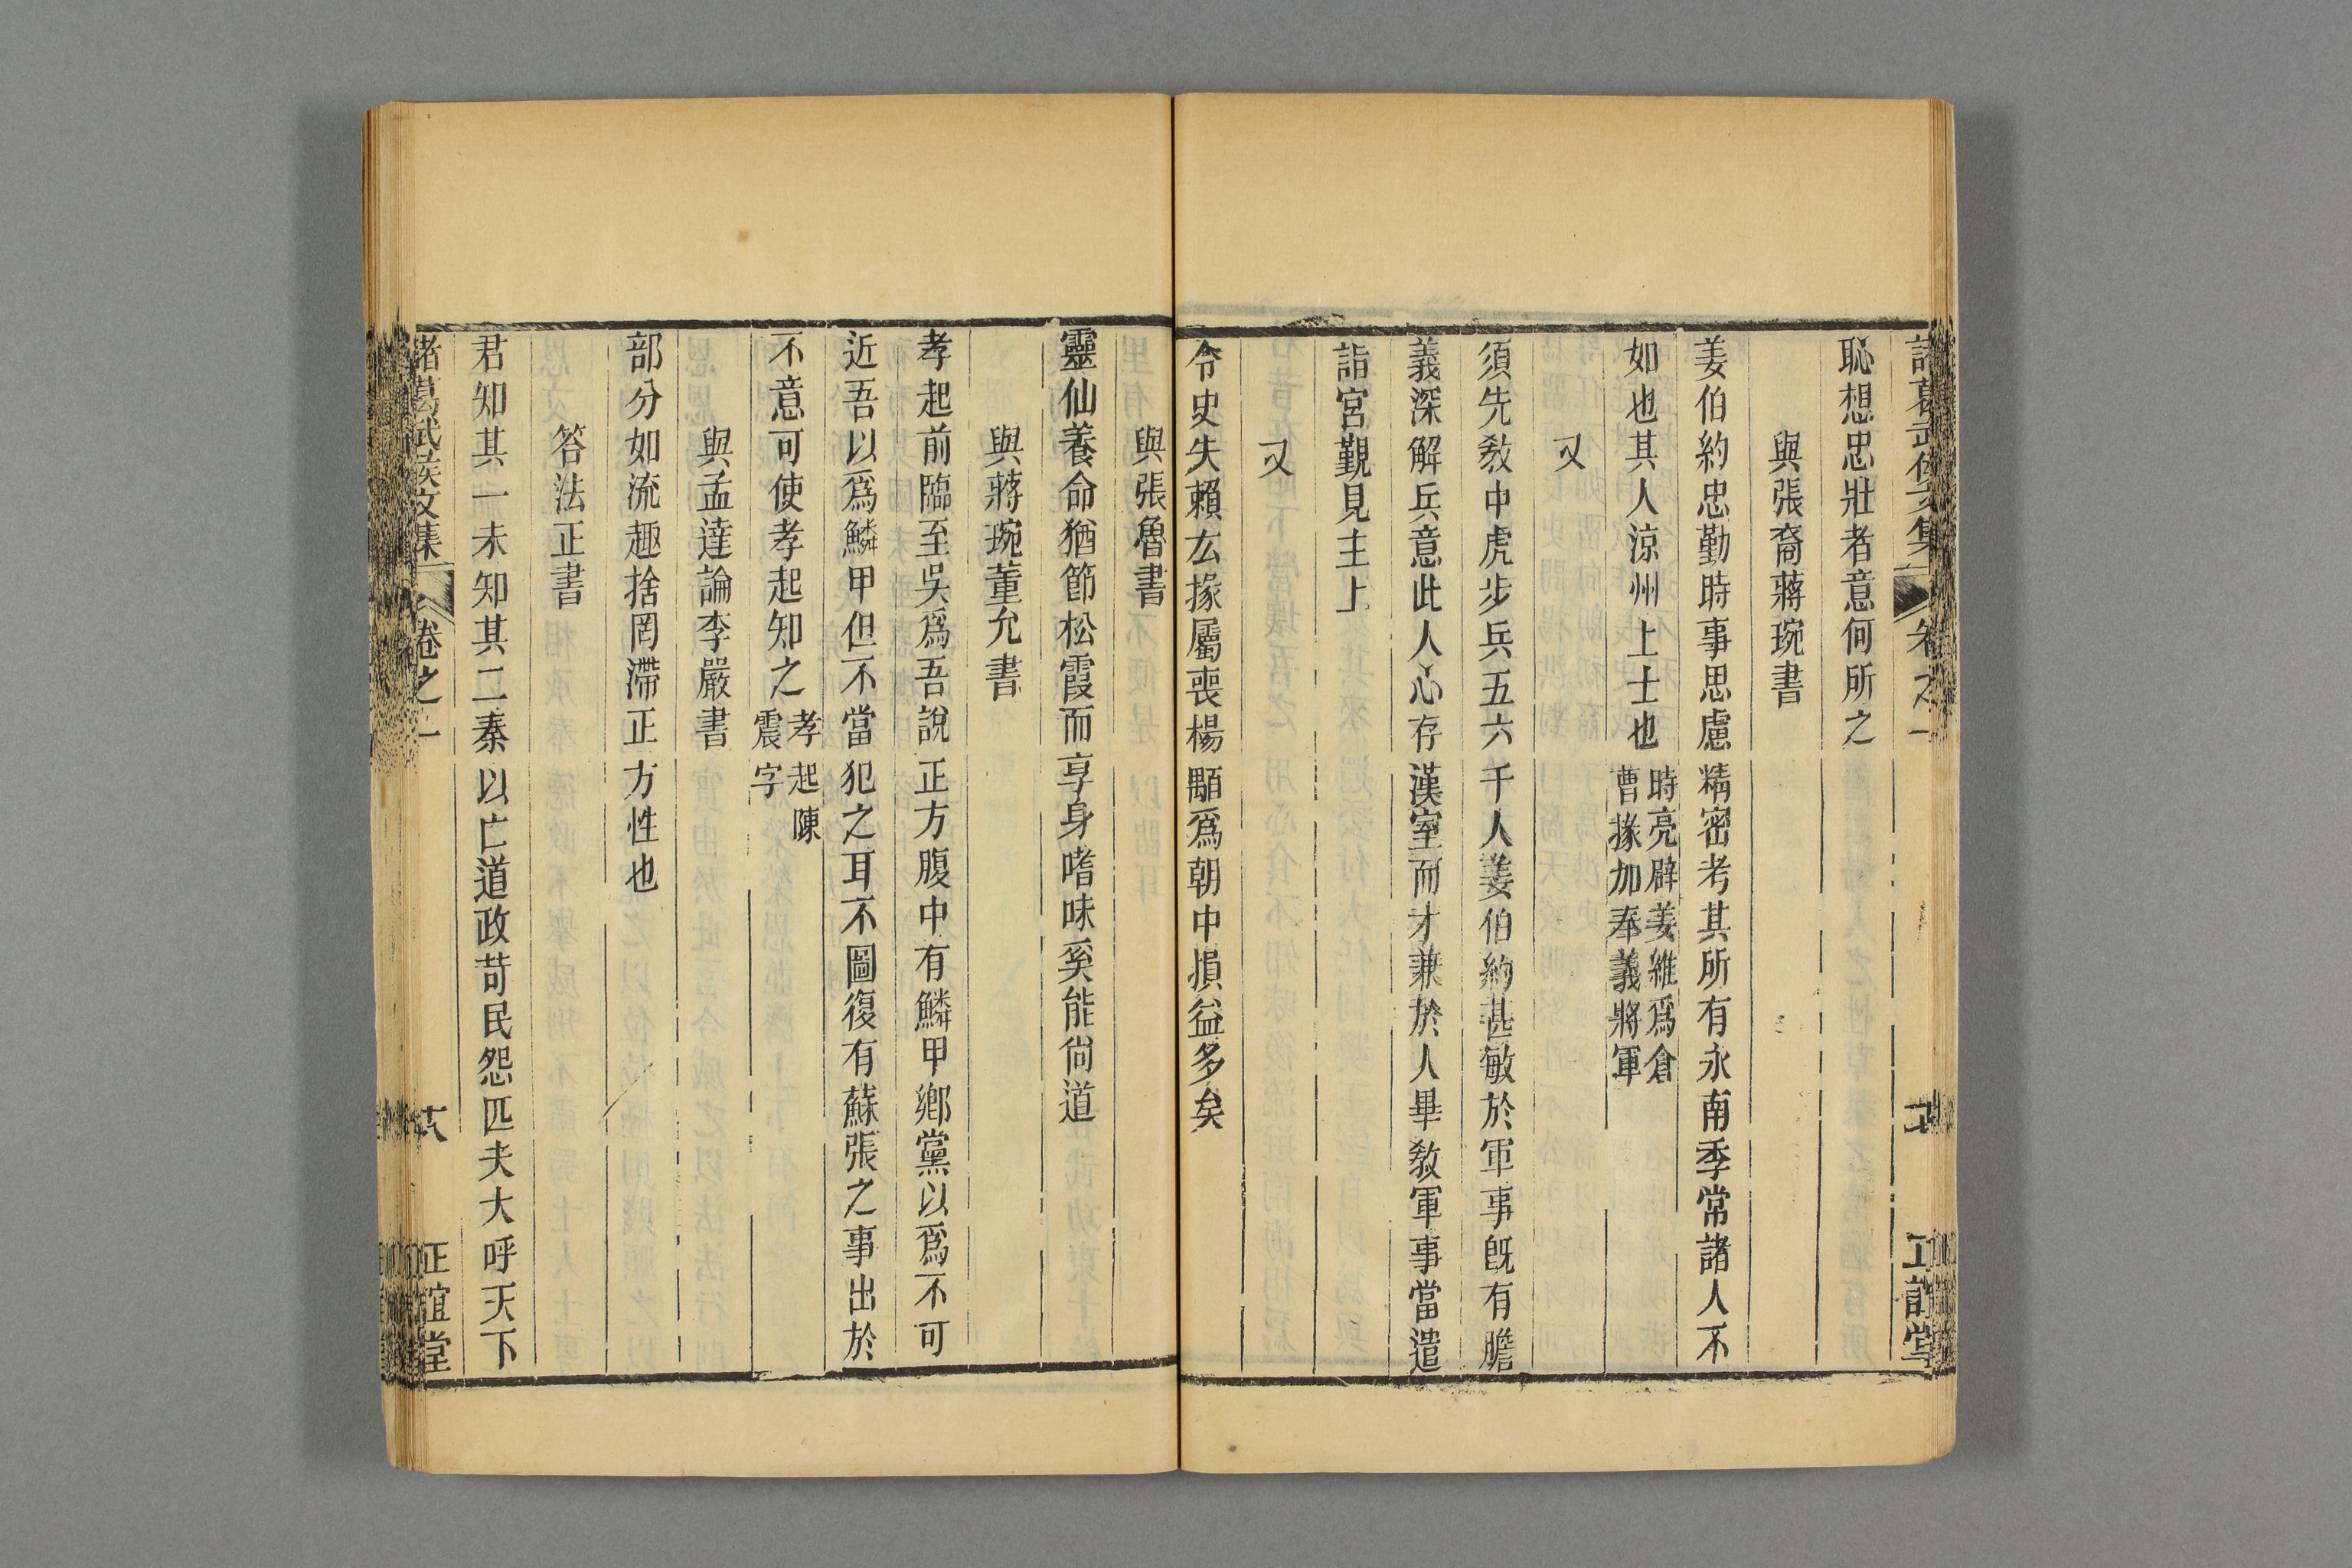 諸葛武侯文集 卷之一 正誼堂
恥想忠壯者意何所之
與張裔蔣琬書
姜伯約忠勤時事思慮精密考其所有永南季常諸人不
如也其人涼州上士也
時亮辟姜維爲倉
曹掾加奉義將軍
又
須先敎中虎步兵五六千人姜伯約甚敏於軍事旣有膽
義深解兵意此人心存漢室而才兼於人畢敎軍事當遣
詣宮覲見主上
又
令史失賴厷掾屬喪楊顒爲朝中損益多矣
與張魯書
靈仙養命猶節松霞而享身嗜味奚能尙道
與蔣琬董允書
孝起前臨至吳爲吾說正方腹中有鱗甲鄕黨以爲不可
近吾以爲鱗甲但不當犯之耳不圖復有蘇張之事出於
不意可使孝起知之
孝起陳
震字
與孟達論李嚴書
部分如流趣捨罔滯正方性也
答法正書
君知其一未知其二秦以亡道政苛民怨匹夫大呼天下
諸葛武侯文集 卷之一 十八 正誼堂